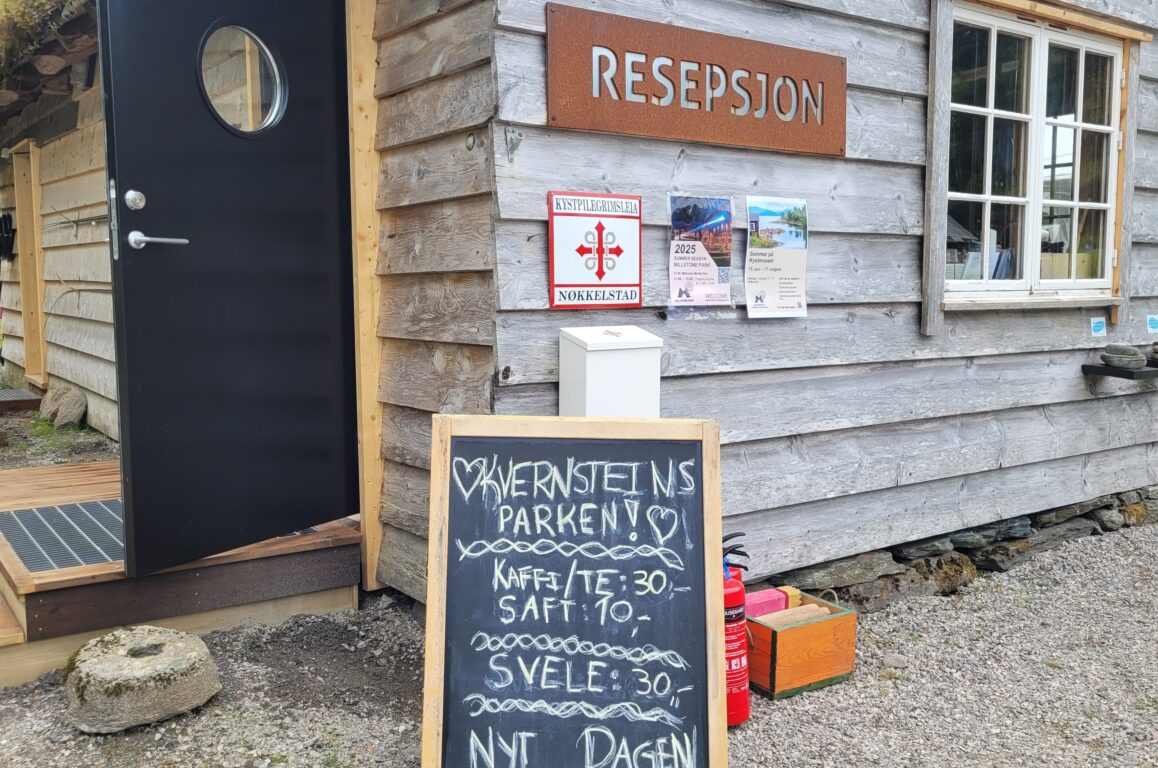 RESEPSJON
KYSTPILEGRIMSLEIA
NØKKELSTAD
2025
SUMMER SEASON
MILLSTONE PARK
WELCOME
Sommar på
Kystmuseet
♡KVERNSTEINS
PARKEN!♡
KAFFI/TE: 30,-
SAFT: 10,-
SVELE: 30,-
NYT DAGEN